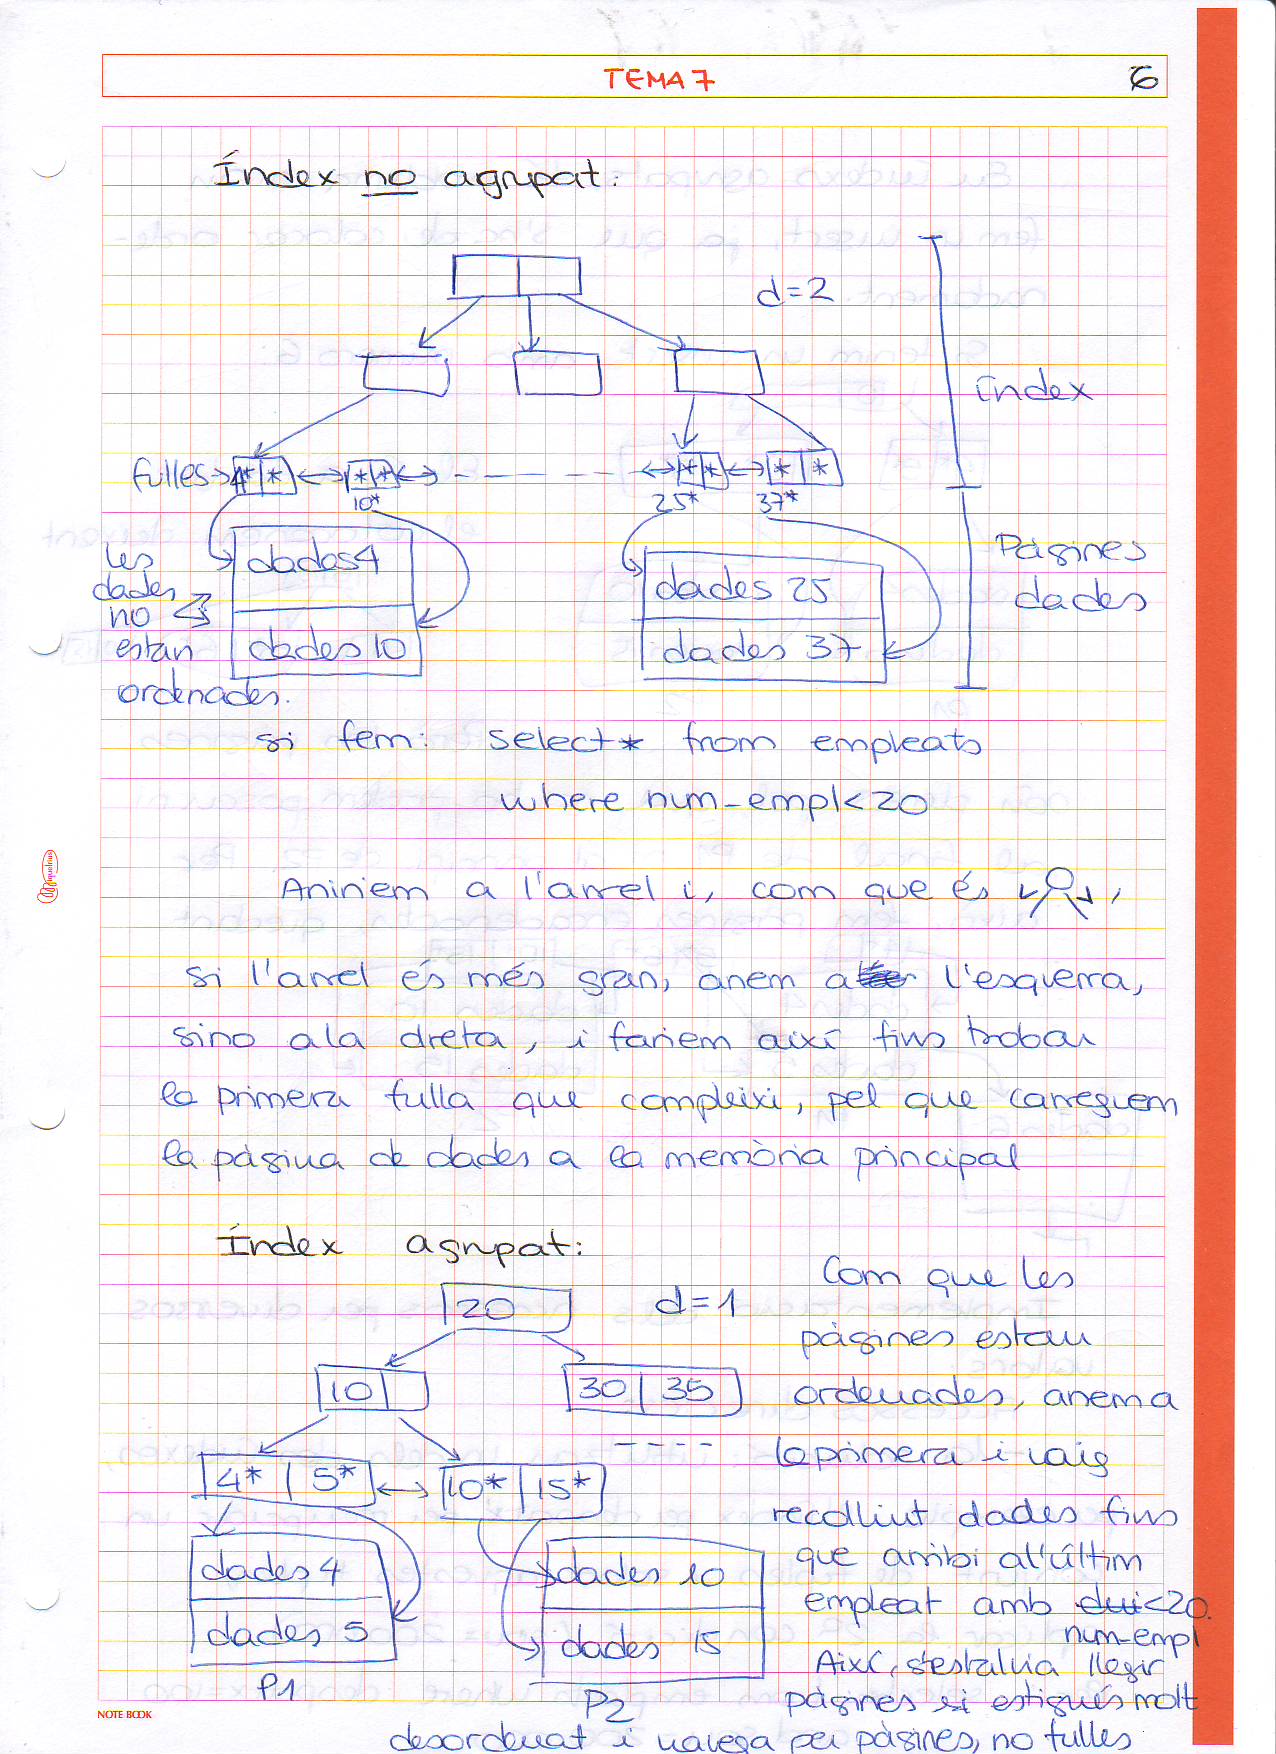 TEMA 7
6
Índex no agrupat:
d=2
índex
fulles → 4* * ↔ * * ↔ - - - - - ↔ * * ↔ * *
10* 25* 37*
les dades no estan ordenades.
dades 4
dades 10
dades 25
dades 37
Pàgines
dades
si fem: select * from empleats
where num-empl < 20
Aniríem a l'arrel i, com que és
si l'arrel és més gran, anem a l'esquerra,
sino a la dreta, i faríem així fins trobar
la primera fulla que compleixi, pel que carreguem
la pàgina de dades a la memòria principal
Índex agrupat:
20
d=1
10
30 35
4* 5* ↔ 10* 15*
- - - -
dades 4
dades 5
P1
dades 10
dades 15
P2
Com que les
pàgines estan
ordenades, anem a
la primera i vaig
recollint dades fins
que arribi a l'últim
empleat amb dui<20.
num-empl
Així, s'estalvia llegir
pàgines si estigués molt
desordenat i navega per pàgines, no fulles
miquelrius
NOTE BOOK